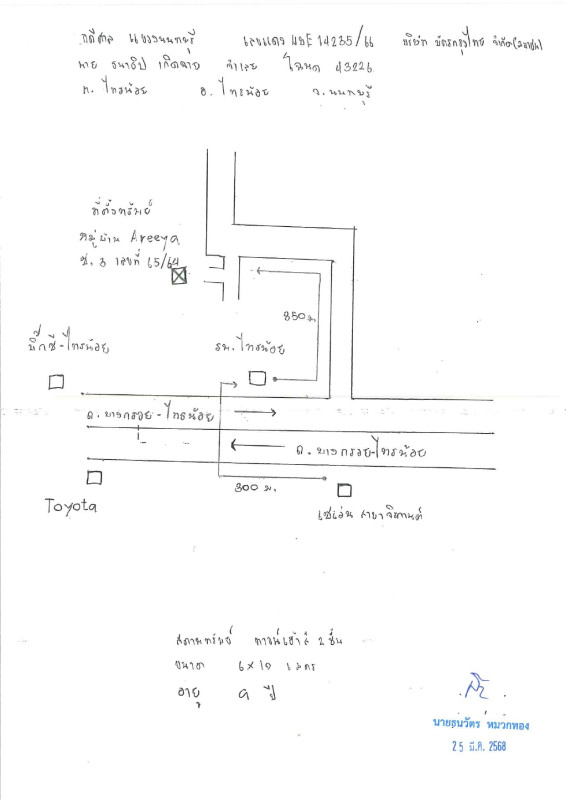 คดีศาล แขวงนนทบุรี เลขแดง ผบE 14235/66 บริษัท บัตรกรุงไทย จำกัด(มหาชน)
นาย ธนาธิป เกิดฉาย จำเลย โฉนด 43226
ต. ไทรน้อย อ. ไทรน้อย จ. นนทบุรี
ที่ตั้งทรัพย์
หมู่บ้าน Areeya
ซ. 3 เลขที่ 65/64
850 ม.
บิ๊กซี-ไทรน้อย
รพ. ไทรน้อย
ถ. บางกรวย-ไทรน้อย
ถ. บางกรวย-ไทรน้อย
300 ม.
Toyota
เซเว่น สาขา
สภาพทรัพย์ ทาวน์เฮ้าส์ 2 ชั้น
ขนาด เมตร
อายุ 9 ปี
นายธนวัตร หมวกทอง
25 มี.ค. 2568